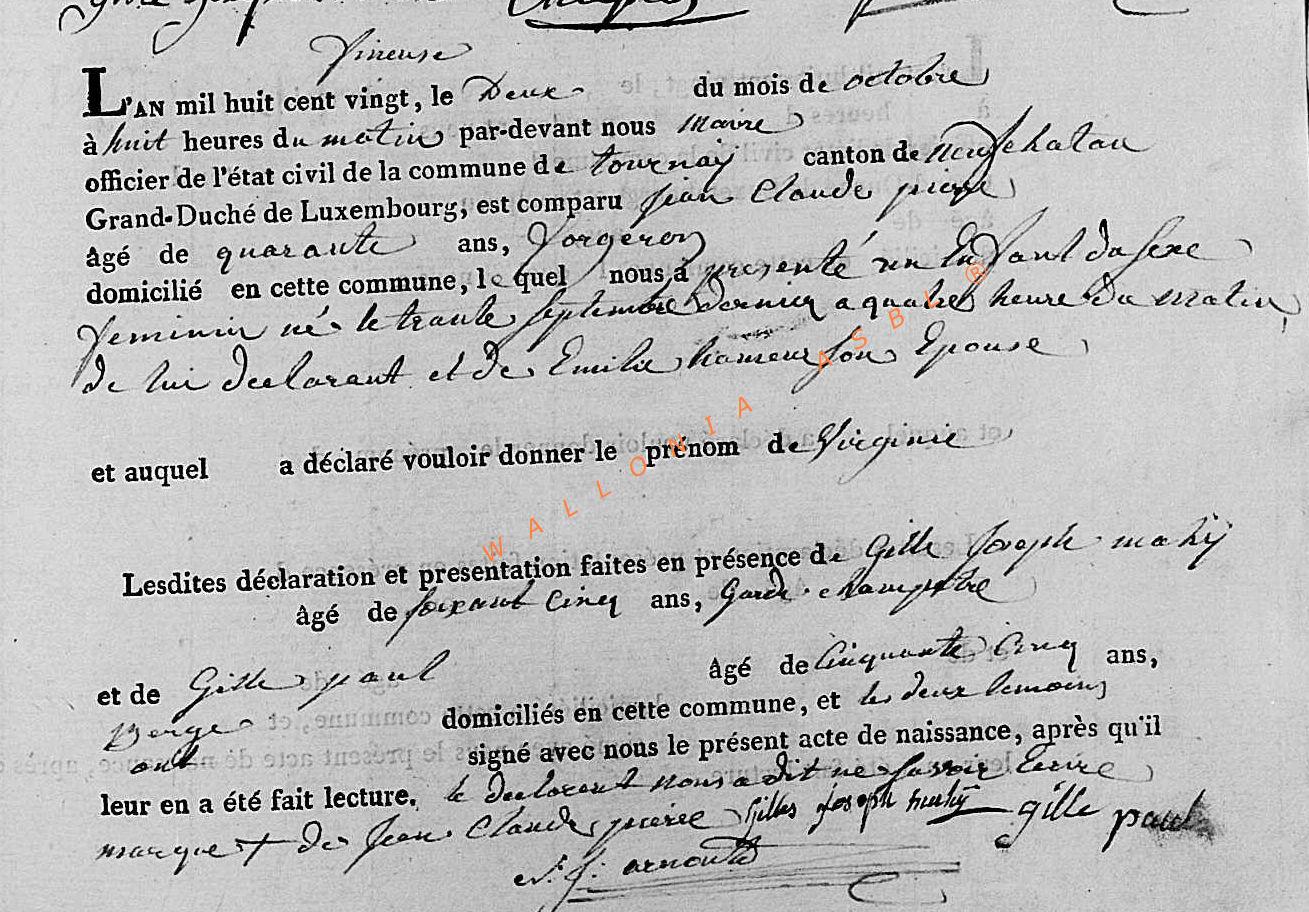 Vineuse
L'AN mil huit cent vingt, le Deux du mois de octobre
à huit heures du matin par-devant nous maire
officier de l'état civil de la commune de tournay canton de neufchatau
Grand-Duché de Luxembourg, est comparu jean Claude pierre
âgé de quarante ans, forgeron
domicilié en cette commune, le quel nous a presenté un Enfant du sexe
feminin né le trante septembre dernier a quatre heure du matin
de lui declarant et de Emilie son Epouse
et auquel a déclaré vouloir donner le prénom de Virginie
Lesdites déclaration et presentation faites en présence de Gille Joseph mahy
âgé de soixante Cinq ans, Garde champetre
et de Gille paul âgé de Cinquante Cinq ans,
Berger domiciliés en cette commune, et les deux temoins
ont signé avec nous le présent acte de naissance, après qu'il
leur en a été fait lecture. le declarant nous a dit ne savoir Ecrire
marque + de Jean Claude pierre Gilles joseph mahy gille paul
arnould
WALLONIA ASBL ®